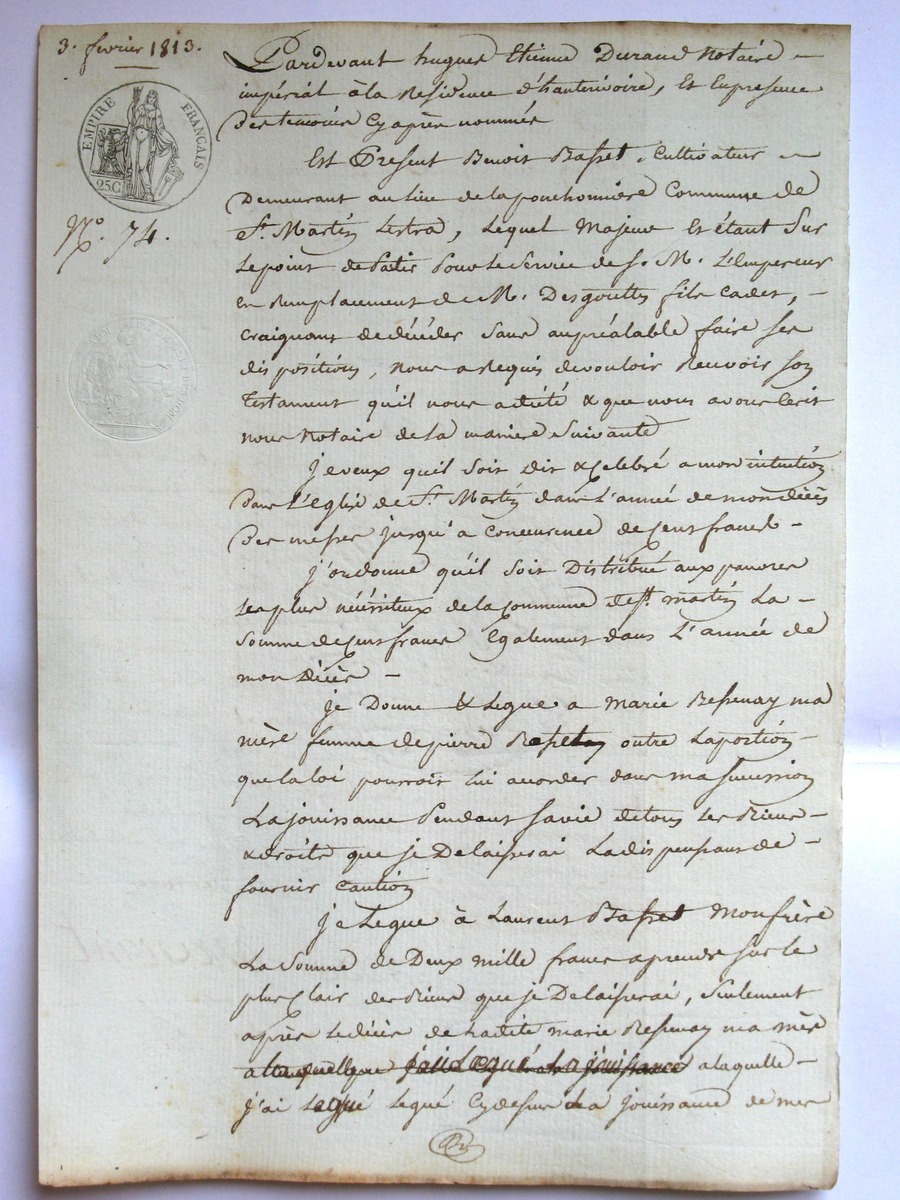 3. fevrier 1813.
EMPIRE FRANÇAIS
25C
N.º 74.
Pardevant hugues Etienne Durand Notaire
impérial à la Residence d'hauterivoire, Et En presence
Des temoins Cy après nommés
Est Present Benoit Basset, Cultivateur
Demeurant au lieu de la ponchonniere Commune de
St. Martin Lestra, Lequel Majeur Et étant Sur
Le point de Partir Pour le Service de S. M. L'Empereur
En Remplacement de M. Desgouttes fils Cadet,
Craignant de décéder Sans au préalable faire ses
dispositions, nous a Requis de vouloir Recevoir son
Testament qu'il nous a dicté & que nous avons Ecrit
nous Notaire de la maniere Suivante
je veux qu'il soit dit & Celebré a mon intention
Dans L'Eglise de St. Martin dans L'année de mon décès
Des messes jusqu'a Concurence de Cent francs
j'ordonne qu'il soit Distribué aux pauvres
Les plus nécéssiteux de la Commune de St. martin La
Somme de Cent francs Egalement dans L'année de
mon décès
je Donne & Legue a marie Ressenay ma
mère femme de pierre Basset en outre La portion
que la loi pourroit lui accorder dans ma succession
La jouissance Pendant sa vie de tous Les Biens
& droits que je Delaisserai La dispensant de
fournir Caution
je Legue à Laurent Basset Mon frère
La Somme de Deux mille francs a prendre sur le
plus Clair des Biens que je Delaisserai, Seulement
après le décès de ladite marie Ressenay ma mère
a laquelle j'ai Legué La jouissance a laquelle
j'ai legué Legué Cy dessus La jouissance de mes